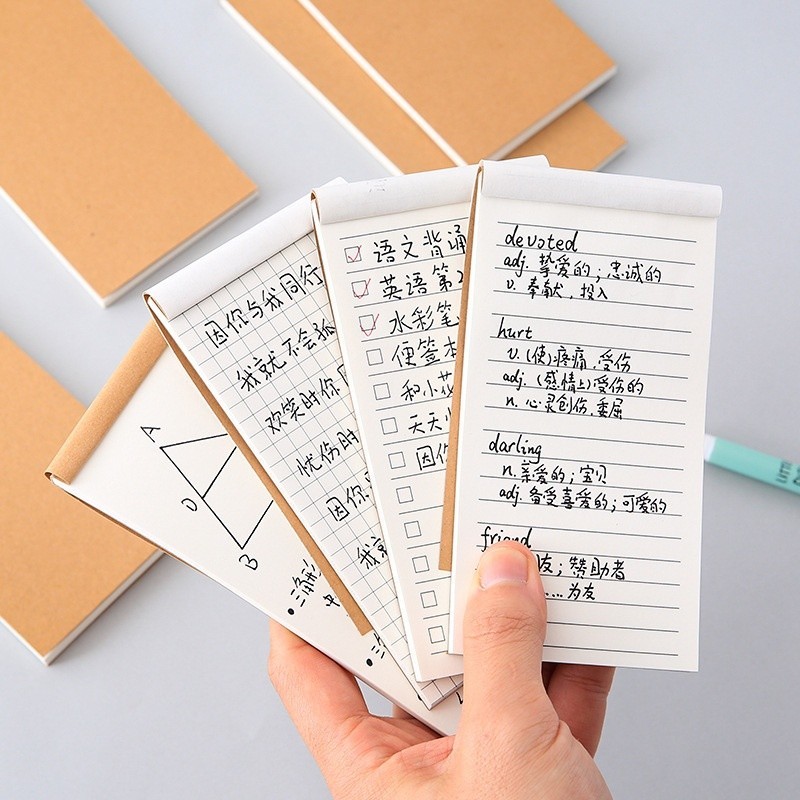 A
D
B
因你与我同行
我就不会孤
欢笑时你
忧伤时
因你
我就
语文背诵
英语第2
水彩笔
便签本
和小花
天天
因你
devoted
adj. 挚爱的；忠诚的
v. 奉献，投入
hurt
v. (使)疼痛，受伤
adj. (感情上)受伤的
n. 心灵创伤，委屈
darling
n. 亲爱的；宝贝
adj. 备受喜爱的；可爱的
friend
友；赞助者
....为友